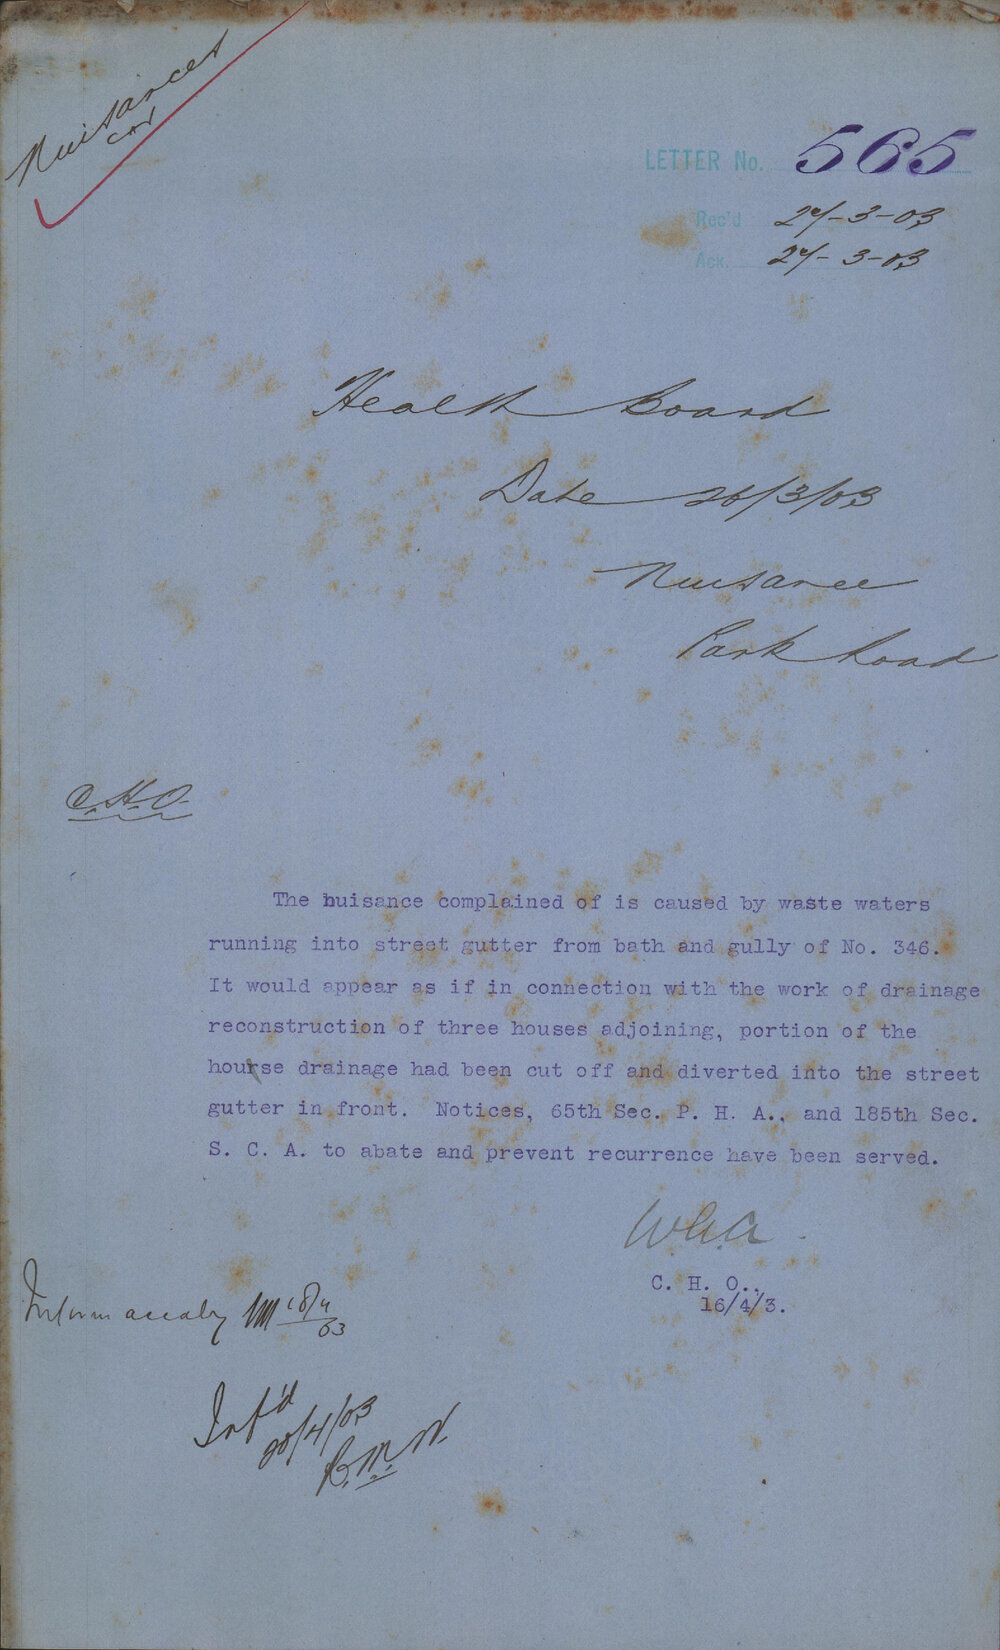 Nuisances
LETTER No. 565
Rec'd 27-3-03
Ack. 27-3-03
Health Board
Date 26/3/03
Nuisance
Park Road
C.H.O.
The nuisance complained of is caused by waste waters
running into street gutter from bath and gully of No. 346.
It would appear as if in connection with the work of drainage
reconstruction of three houses adjoining, portion of the
hourse drainage had been cut off and diverted into the street
gutter in front. Notices, 65th Sec. P. H. A., and 185th Sec.
S. C. A. to abate and prevent recurrence have been served.
W.G.A.
C. H. O.,
16/4/3.
Inform accdly 18/4/03
Inf'd
20/4/03
R.M.W.